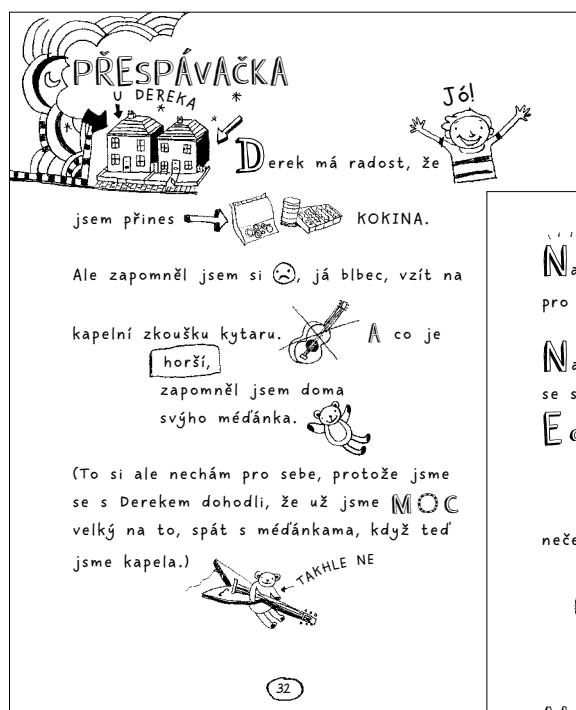 PŘESPÁVAČKA
U DEREKA
Jó!
Derek má radost, že
jsem přines KOKINA.
Ale zapomněl jsem si, já blbec, vzít na
kapelní zkoušku kytaru. A co je
horší,
zapomněl jsem doma
svýho méďánka.
(To si ale nechám pro sebe, protože jsme
se s Derekem dohodli, že už jsme MOC
velký na to, spát s méďánkama, když teď
jsme kapela.)
TAKHLE NE
32
pro
se s